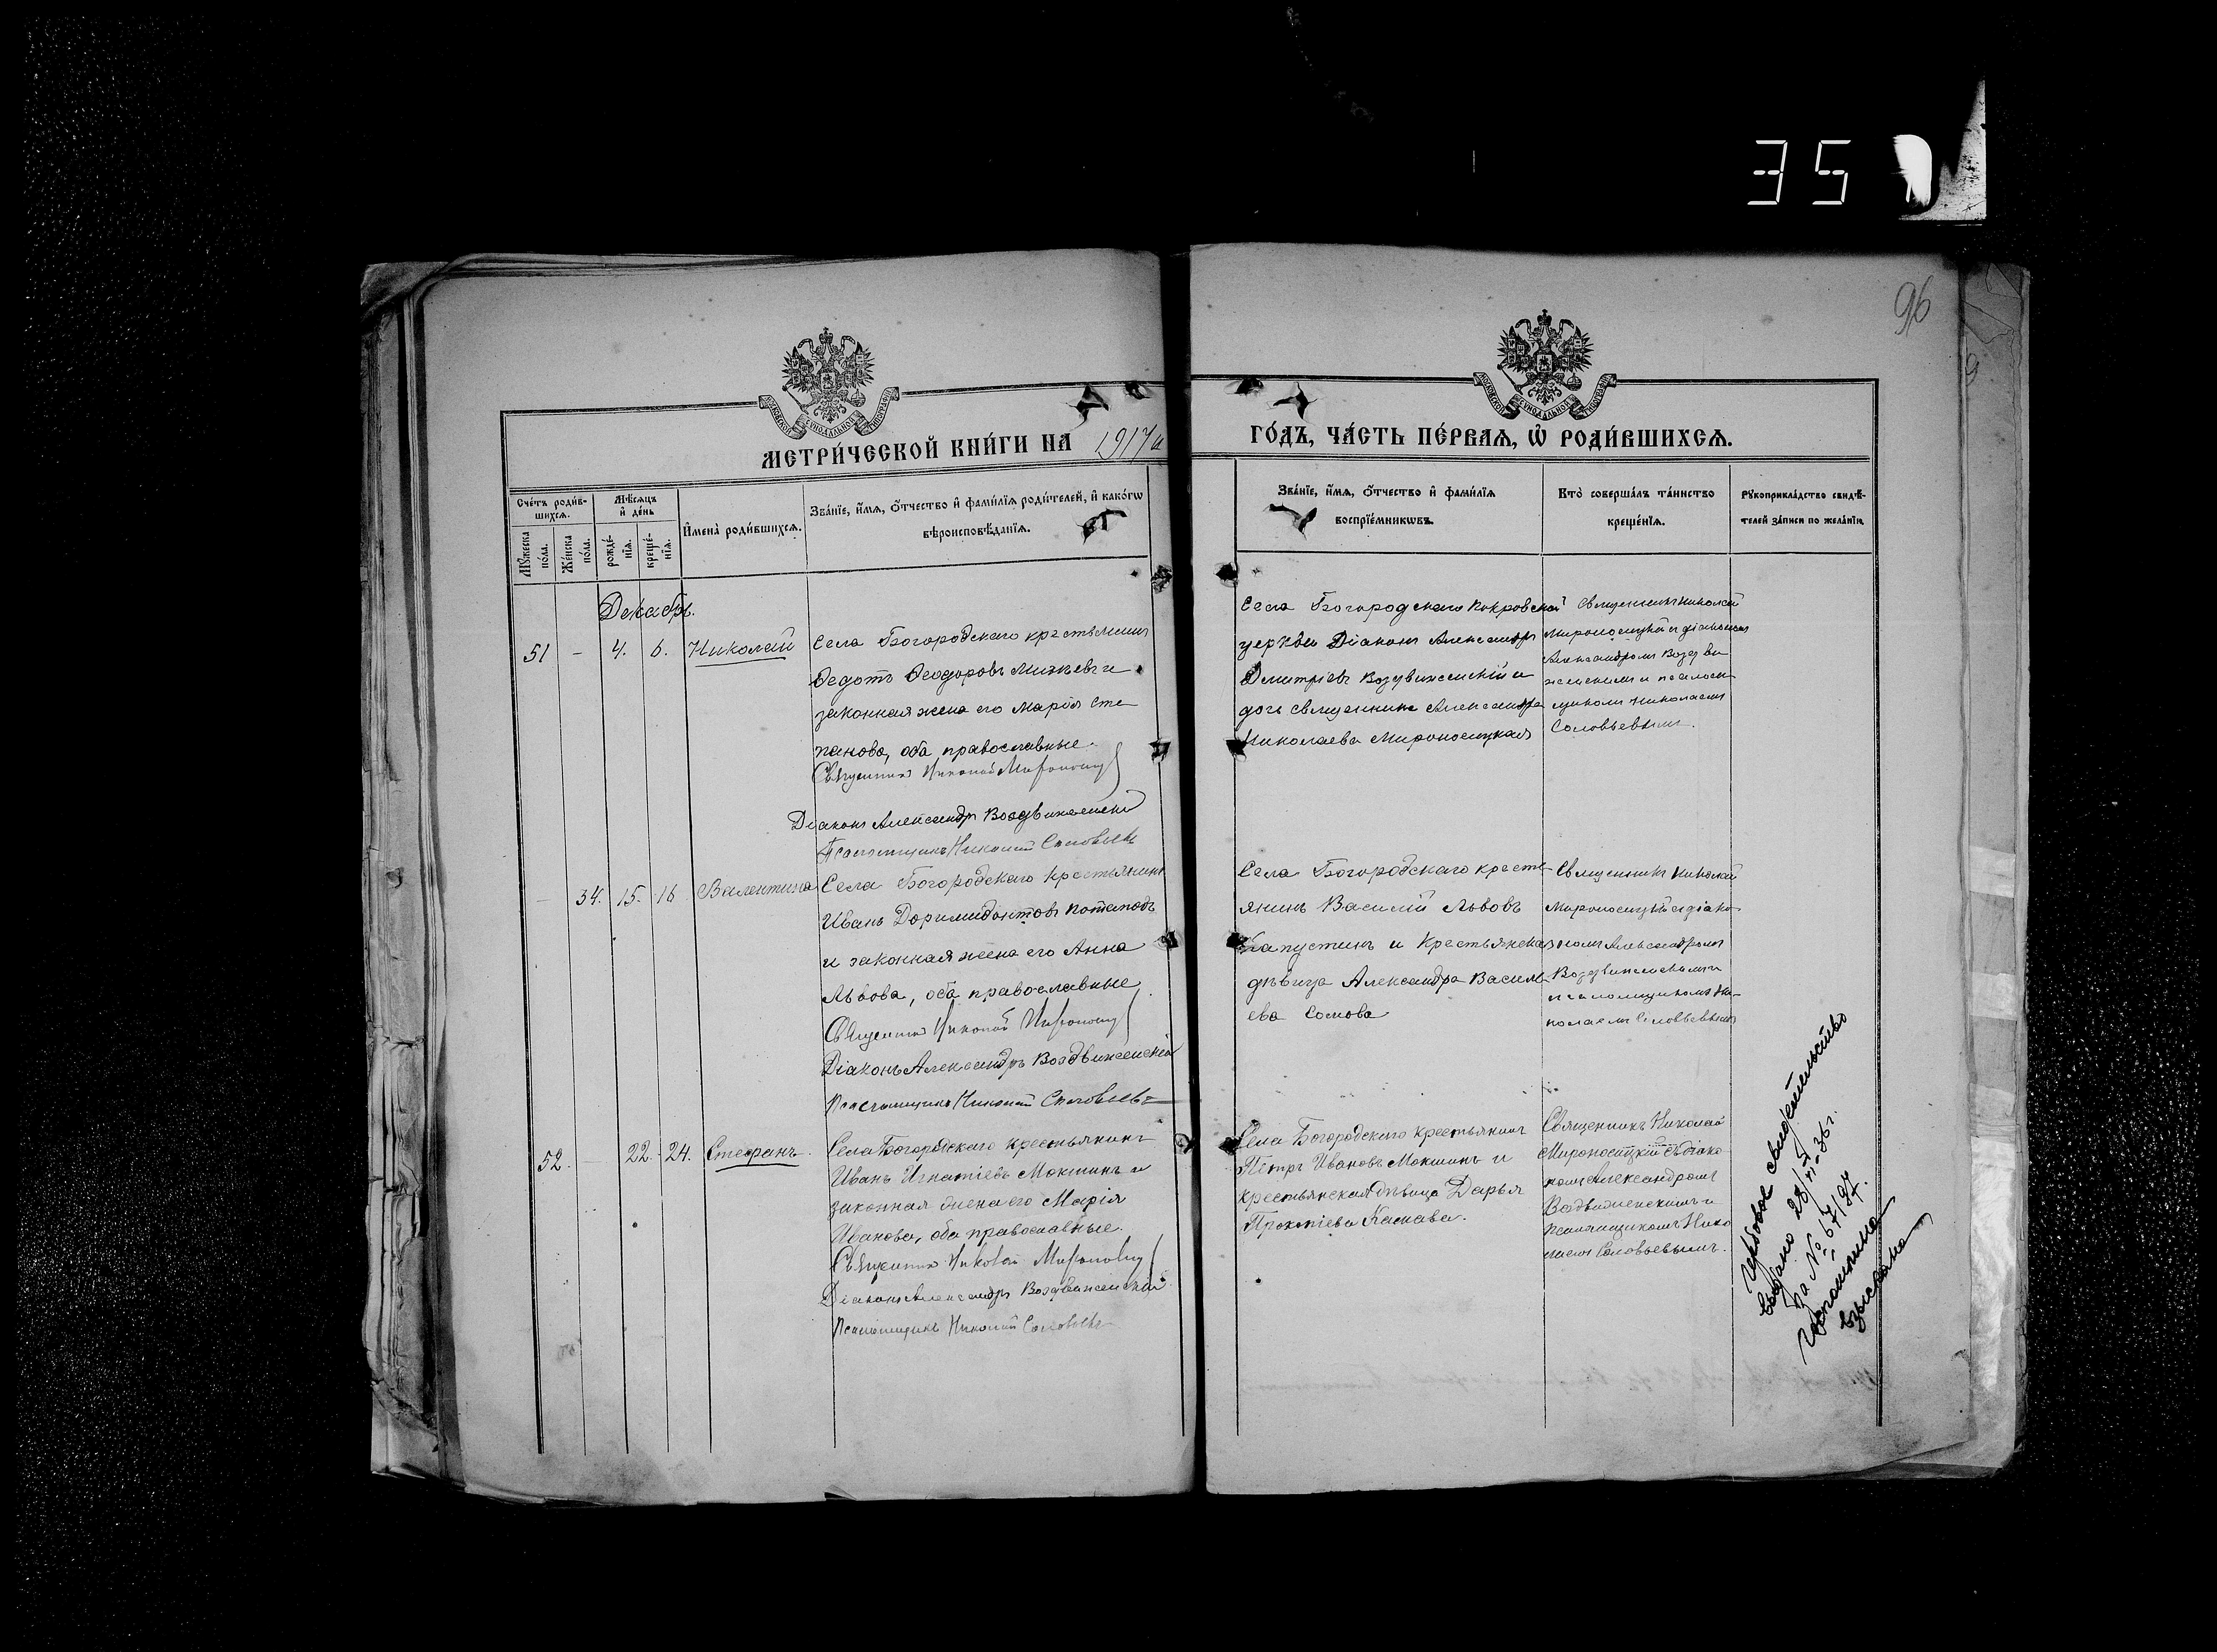 35
96
МОСКОВСКОЙ СѴНОДАЛЬНОЙ ТИПОГРАФІИ
МОСКОВСКОЙ СѴНОДАЛЬНОЙ ТИПОГРАФІИ
МЕТРИ́ЧЕСКОЙ КНИ́ГИ НА 1917й
ГО́ДЪ, ЧА́СТЬ ПЕ́РВАѦ, Ѡ҆ РОДИ́ВШИХСѦ.
Сче́тъ роди́в-
шихсѧ.
Мꙋ́жеска по́ла.
Же́нска по́ла.
Мѣ́сѧцъ и҆ де́нь
рожде́-нїѧ.
креще́-нїѧ.
И҆мена̀ роди́вшихсѧ.
Зва́нїе, и҆́мѧ, ѻ҆́тчество и҆ фами́лїѧ роди́телей, и҆ како́гѡ
вѣроисповѣ́данїѧ.
Зва́нїе, и҆́мѧ, ѻ҆́тчество и҆ фами́лїѧ
воспрїе́мникѡвъ.
Кто̀ соверша́лъ та́инство
креще́нїѧ.
Рꙋкоприкла́дство свидѣ́-
телей за́писи по жела́нїю.
Декабрь.
51 - 4. 6. Николай
Села Богородскаго крестьянинъ
Федотъ Феодоровъ и
законная жена его Марія Сте
панова, оба православные.
Священникъ Николай Мироносиц
Діаконъ Александръ Воздвиженскій
Псаломщикъ Николай Соловьевъ
Села Богородскаго Покровской
церкви Діаконъ Александръ
Димитріевъ Воздвиженскій и
дочь священника Александра
Николаева Мироносицкая
Священникъ Николай
Мироносицкій съ діакономъ
Александромъ Воздви
женскимъ и псалом
щикомъ Николаемъ
Соловьевымъ.
- 34. 15. 16 Валентина
Села Богородскаго крестьянинъ
Иванъ Доримидонтовъ Потаповъ
и законная жена его Анна
Львова, оба православные
Священникъ Николай Мироносиц
Діаконъ Александръ Воздвиженскій
Псаломщикъ Николай Соловьевъ
Села Богородскаго кресть
янинъ Василій Львовъ
Капустинъ и крестьянская
дѣвица Александра Василь
ева Сомова
Священникъ Николай
Мироносицкій съ діако
номъ Александромъ
Воздвиженскимъ и
псаломщикомъ Ни-
колаемъ Соловьевымъ
52. 22. 24. Стефанъ.
Села Богородскаго крестьянинъ
Иванъ Игнатіевъ Мокшинъ и
законная жена его Марія
Иванова, оба православные.
Священникъ Николай Мироносиц
Діаконъ Александръ Воздвиженскій
Псаломщикъ Николай Соловьевъ
Села Богородскаго крестьянинъ
Петръ Ивановъ Мокшинъ и
крестьянская дѣвица Дарья
Прокопіева
Священникъ Николай
Мироносицкій съ діако
номъ Александромъ
Воздвиженскимъ и
псаломщикомъ Нико
лаемъ Соловьевымъ.
Гербовое свидетельство
выдано 28/VI-36г.
за № 67/97
взыскана